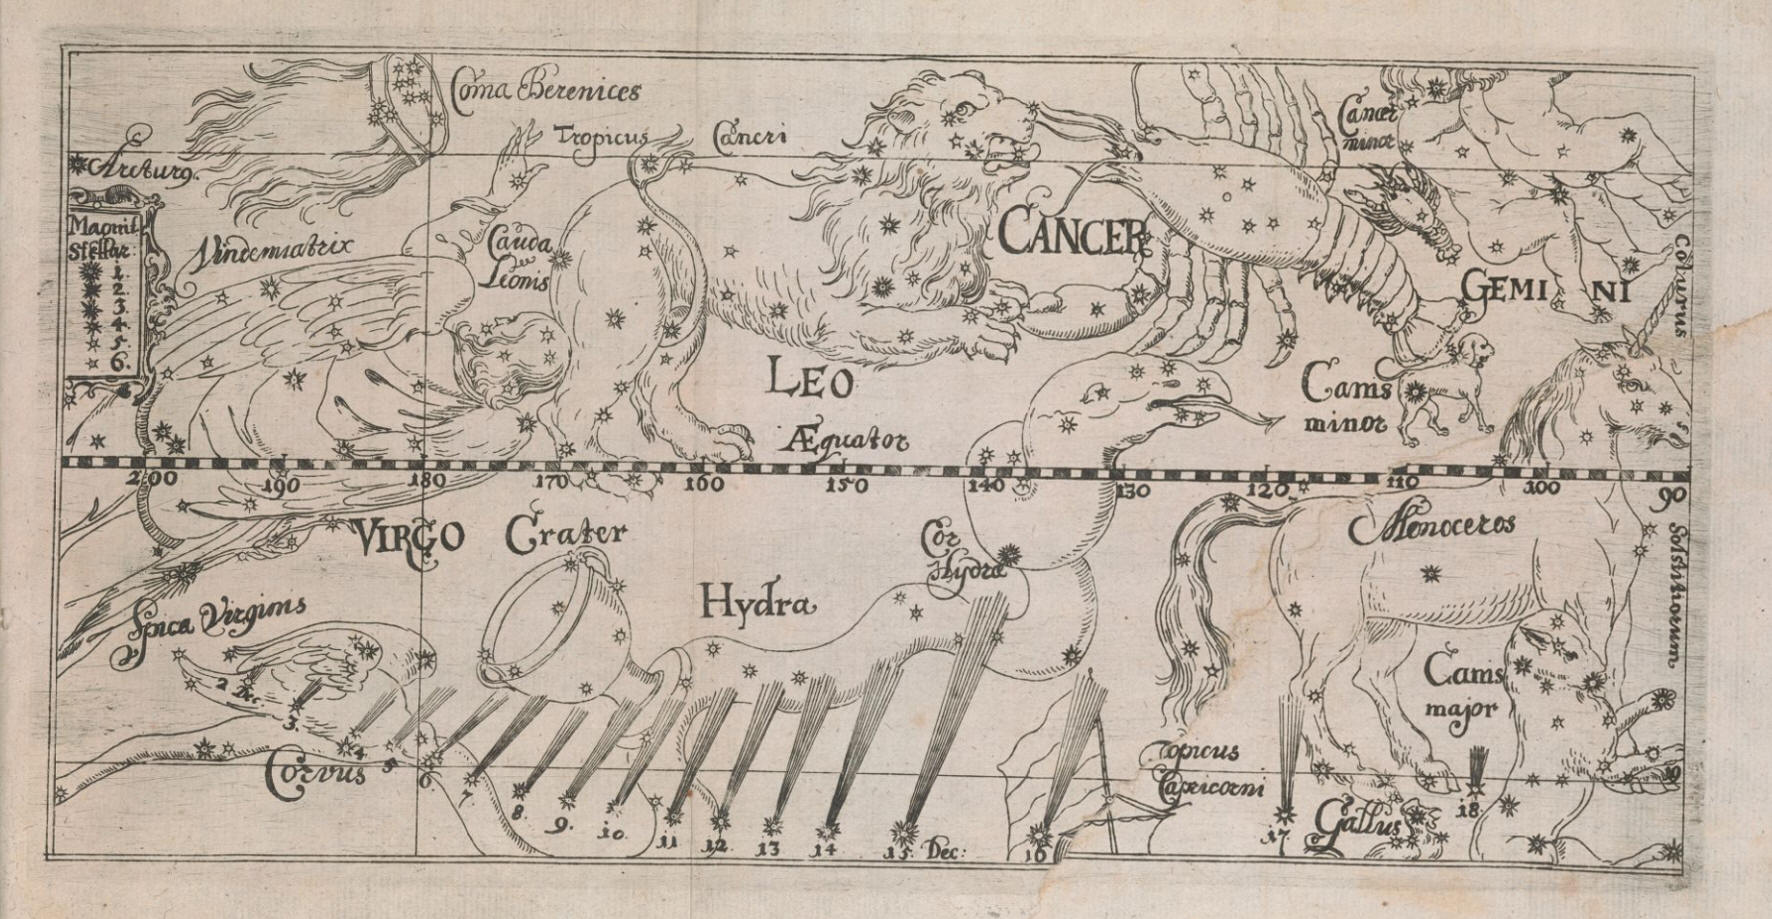 Coma Berenices
Tropicus Cancri
Cancer
minor
Arcturg.
Magnit
Stellar:
1.
2.
3.
4.
5.
6.
Vindemiatrix
Cauda
Leonis
CANCER
GEMINI
Colurus
LEO
Canis
minor
Æquator
200 190 180 170 160 150 140 130 120 110 100 90
VIRGO
Crater
Cor
Hydræ
Monoceros
Solstitiorum
Hydra
Spica Virginis
Canis
major
2 Dec.
3.
4
5
6
7
8.
9.
10
11
12
13
14
15. Dec:
16
17
18
Corvus
Tropicus
Capricorni
Gallus
19